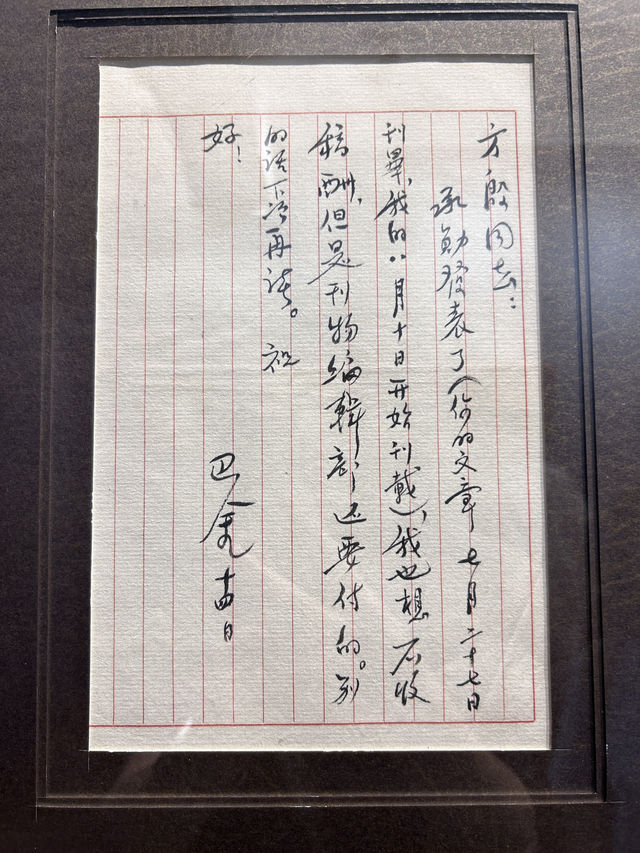 方殷同志：
承勋發表了（你的文章 七月二十七日
刊畢，我的八月十日开始刊載），我也想不收
稿酬，但是刊物编輯部还要付的。别
的话下次再谈。祝
好！
巴金 十四日